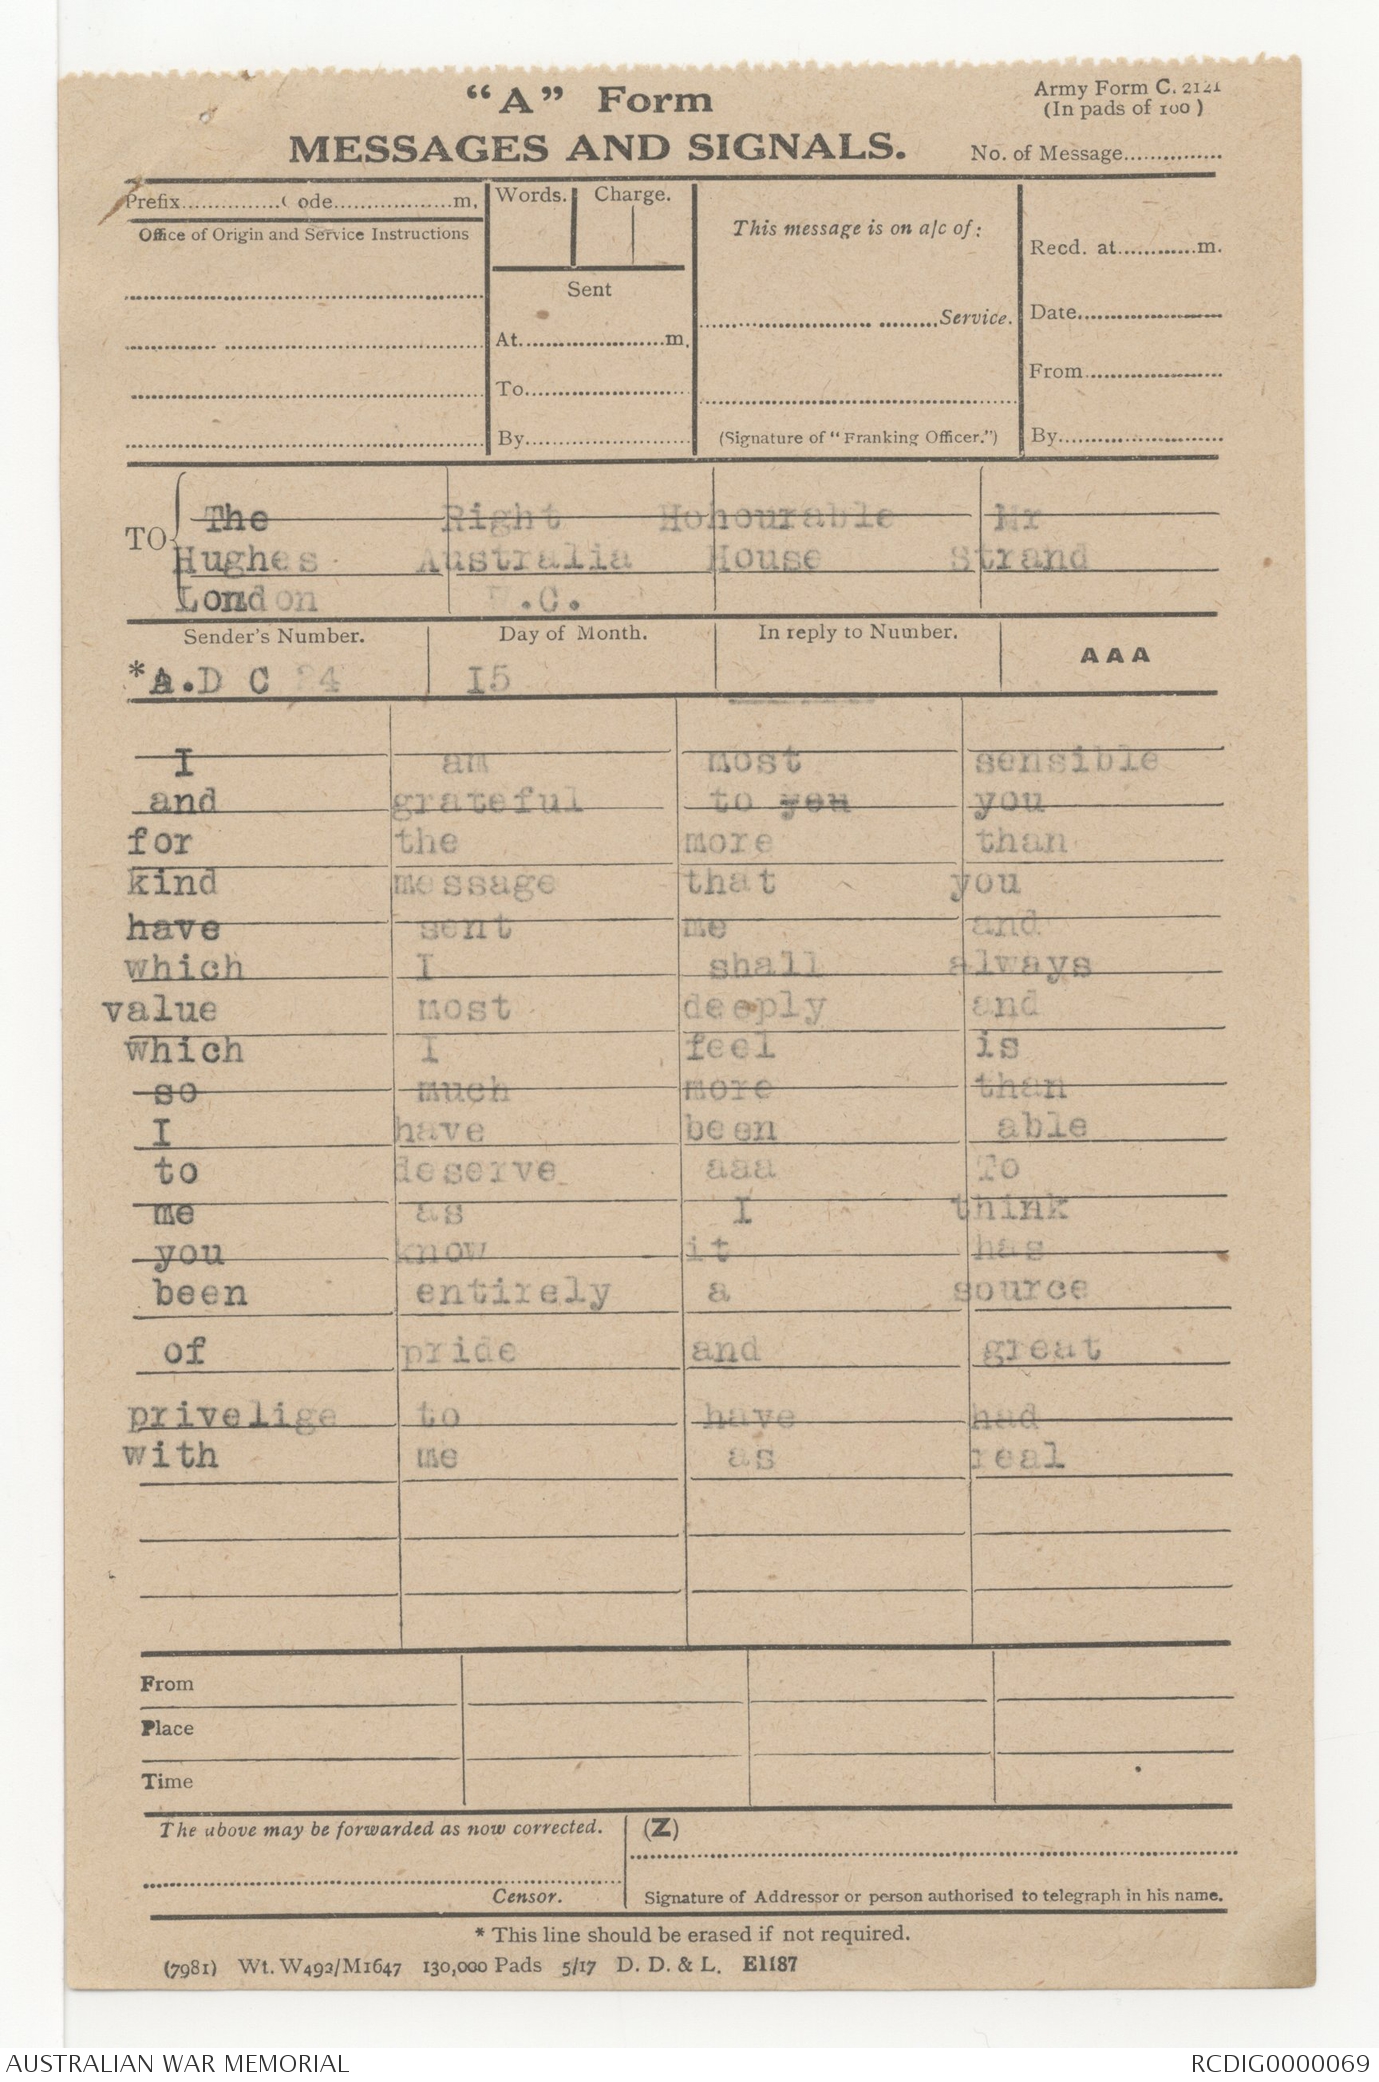 "A" Form
Army Form C. 2121
(In pads of 100)
MESSAGES AND SIGNALS.
No. of Message...............
Prefix...............Code...................m.
Words. Charge.
This message is on a/c of:
Recd. at............m.
Office of Origin and Service Instructions
Sent
Service.
Date
At.......................m.
From
To
By
(Signature of "Franking Officer.")
By
TO
The Right Honourable Mr
Hughes Australia House Strand
London .C.
Sender's Number. Day of Month. In reply to Number. AAA
*A.D C 24 I5
I am most sensible
and grateful to you you
for the more than
kind message that you
have sent me and
which I shall always
value most deeply and
which I feel is
so much more than
I have been able
to deserve aaa To
me as I think
you know it has
been entirely a source
of pride and great
privelige to have had
with me as real
From
Place
Time
The above may be forwarded as now corrected. (Z)
Censor. Signature of Addressor or person authorised to telegraph in his name.
* This line should be erased if not required.
(7981) Wt. W492/M1647 130,000 Pads 5/17 D. D. & L. E1187
AUSTRALIAN WAR MEMORIAL RCDIG0000069